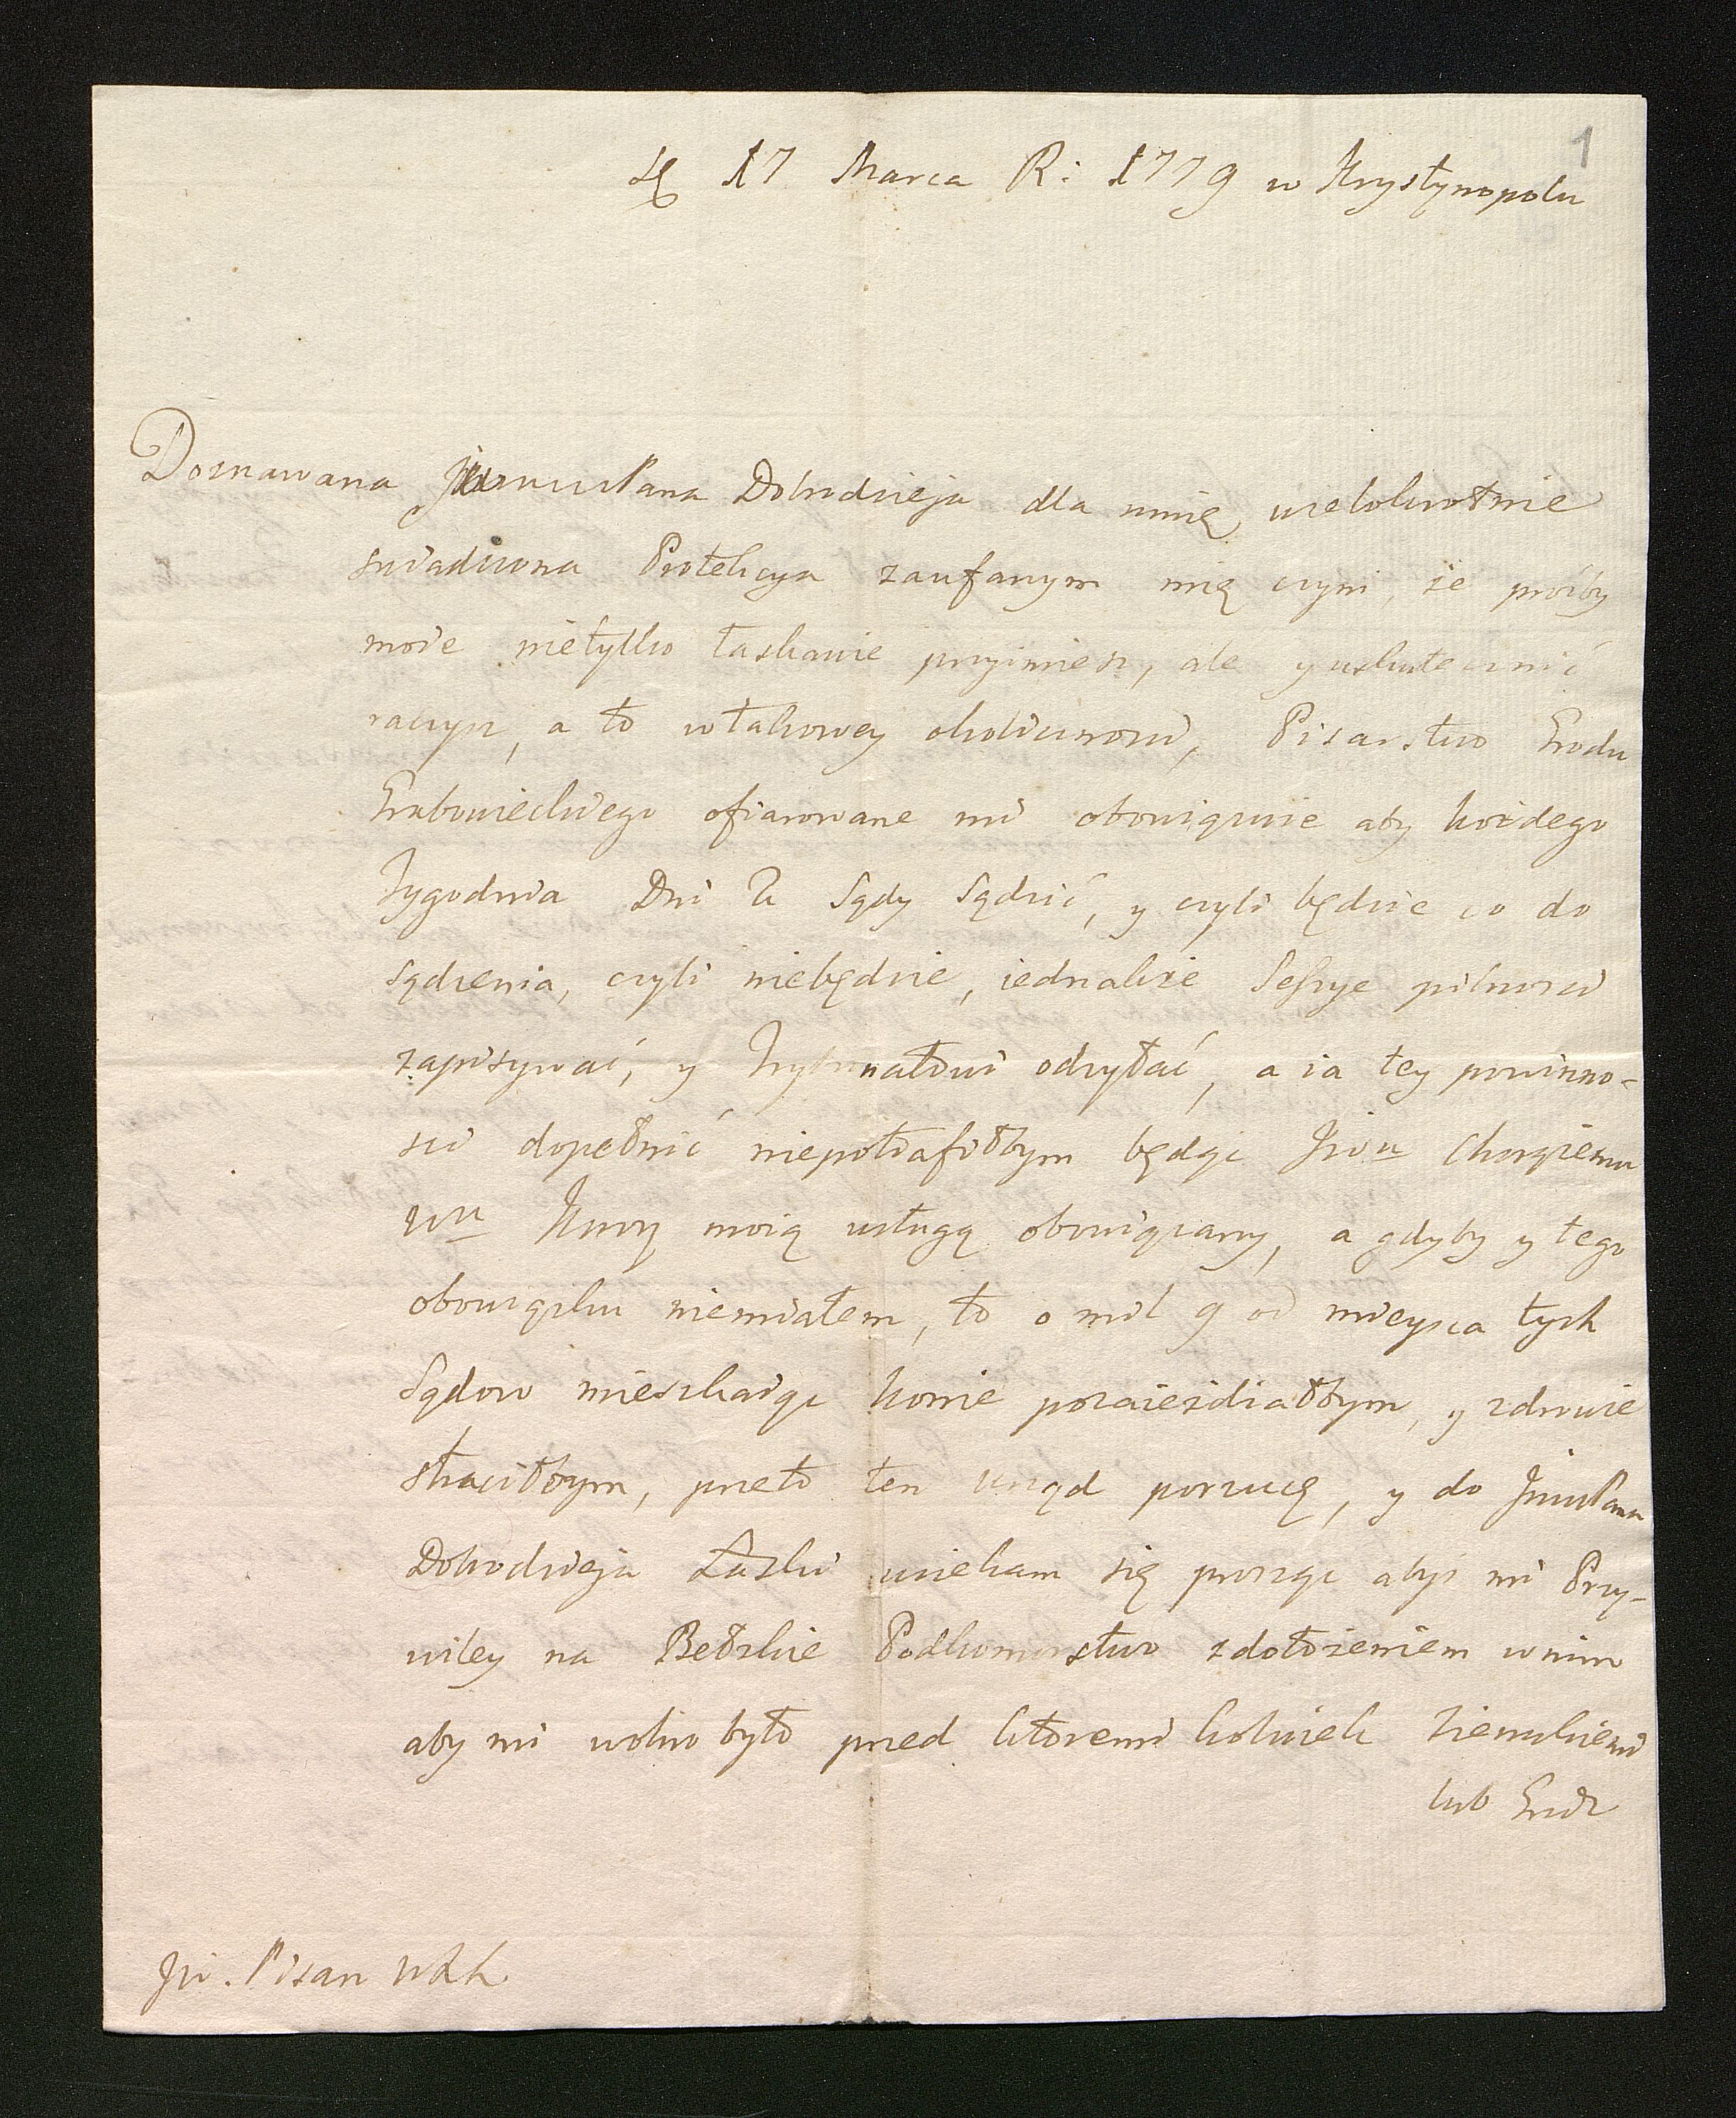 1
17 Marca R: 1779 w Krystynopolu
Doznawana Dobrodzieja dla mnię wielokrotnie
swiadczona Protekcya zaufanym mię czyni, że prożby
moie nietylko łaskawie przyimiesz, ale y uskutecznić
raczysz, a to wtakowey okolicznosci, Pisarstwo Grodu
Grabowieckiego ofiarowane mi obowiązuie aby każdego
Tygodnia Dni Sądy Sądzić, y czyli będzie co do
Sądzenia, czyli niebędzie, iednakże Sessye pilnosci
zapisywać, y Trybunałowi odsyłać, a ia tey powinno-
sci dopełnić niepotrafiłbym będąc Chorążemu
moią usługą obowiązany, a gdyby y tego
obowiązku niemiałem, to o mil 9 od mieysca tych
Sądow mieszkaiąc konie pozaieżdiałbym, y zdrowie
straciłbym, przeto ten urząd porzucę, y do JmwPana
Dobrodzieja Łaski uciekam się prosząc abyś mi Przy-
wiley na Bełzkie Podkomorstwo zdołożeniem wnim
aby mi wolno było przed ktoremi kolwiek Ziemskiemi
lub Grodz
Jw. Pisarz WKK